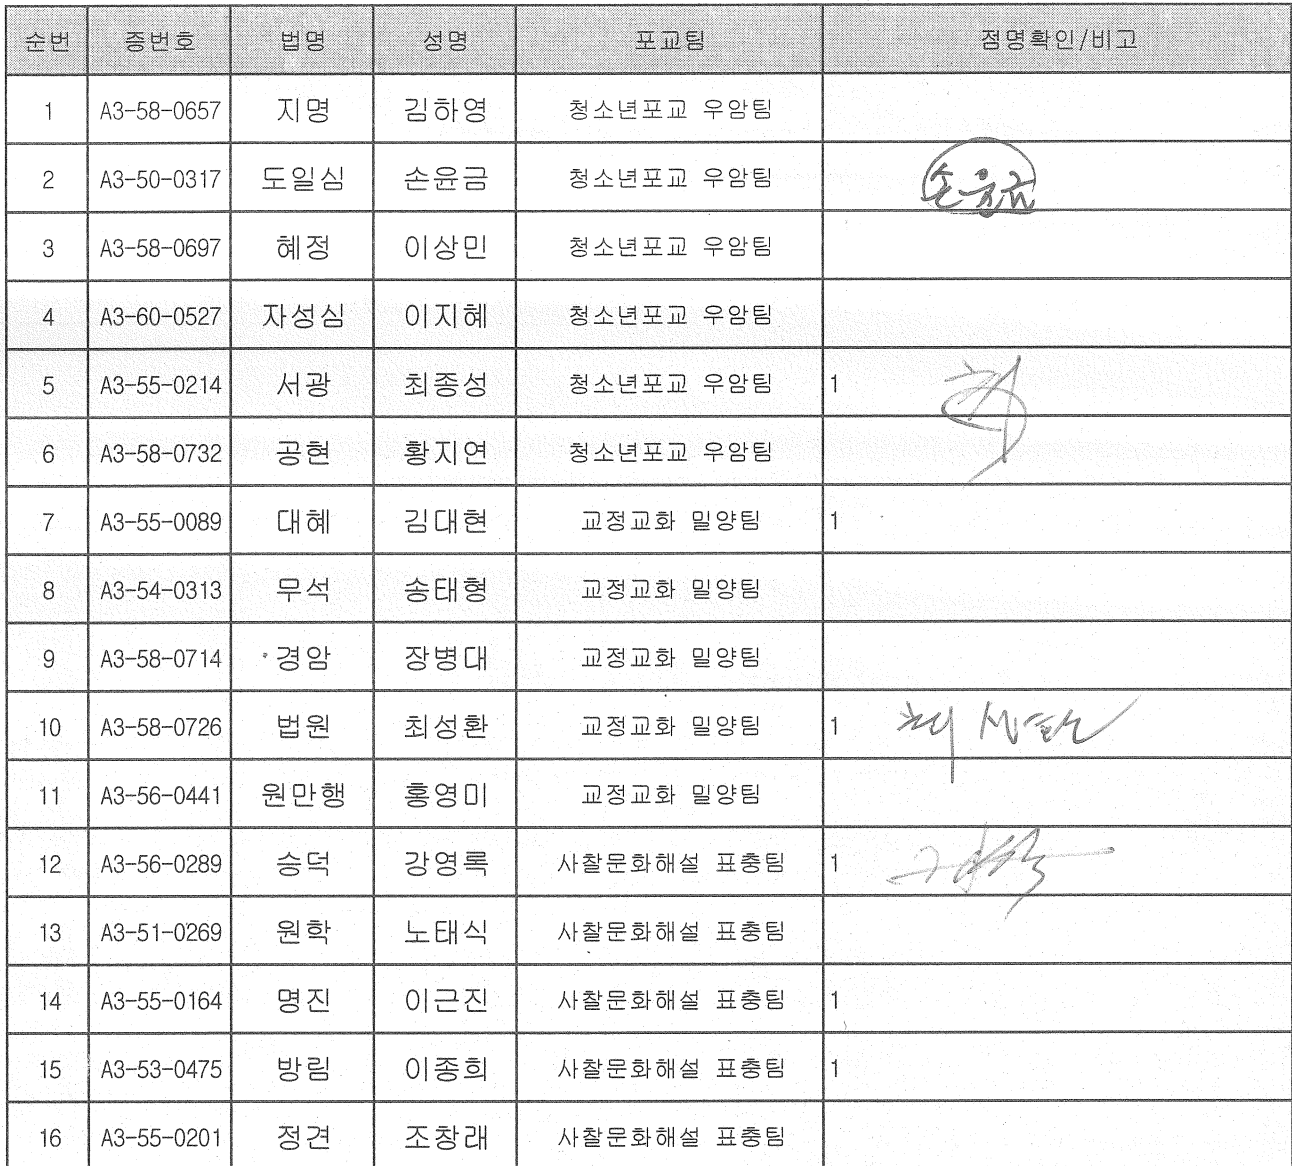 순번 증번호 법명 성명 포교팀 점명확인/비고
1 A3-58-0657 지명 김하영 청소년포교 우암팀
2 A3-50-0317 도일심 손윤금 청소년포교 우암팀 손윤금
3 A3-58-0697 혜정 이상민 청소년포교 우암팀
4 A3-60-0527 자성심 이지혜 청소년포교 우암팀
5 A3-55-0214 서광 최종성 청소년포교 우암팀 1
6 A3-58-0732 공현 황지연 청소년포교 우암팀
7 A3-55-0089 대혜 김대현 교정교화 밀양팀 1
8 A3-54-0313 무석 송태형 교정교화 밀양팀
9 A3-58-0714 경암 장병대 교정교화 밀양팀
10 A3-58-0726 법원 최성환 교정교화 밀양팀 1
11 A3-56-0441 원만행 홍영미 교정교화 밀양팀
12 A3-56-0289 승덕 강영록 사찰문화해설 표충팀 1
13 A3-51-0269 원학 노태식 사찰문화해설 표충팀
14 A3-55-0164 명진 이근진 사찰문화해설 표충팀 1
15 A3-53-0475 방림 이종희 사찰문화해설 표충팀 1
16 A3-55-0201 정견 조창래 사찰문화해설 표충팀